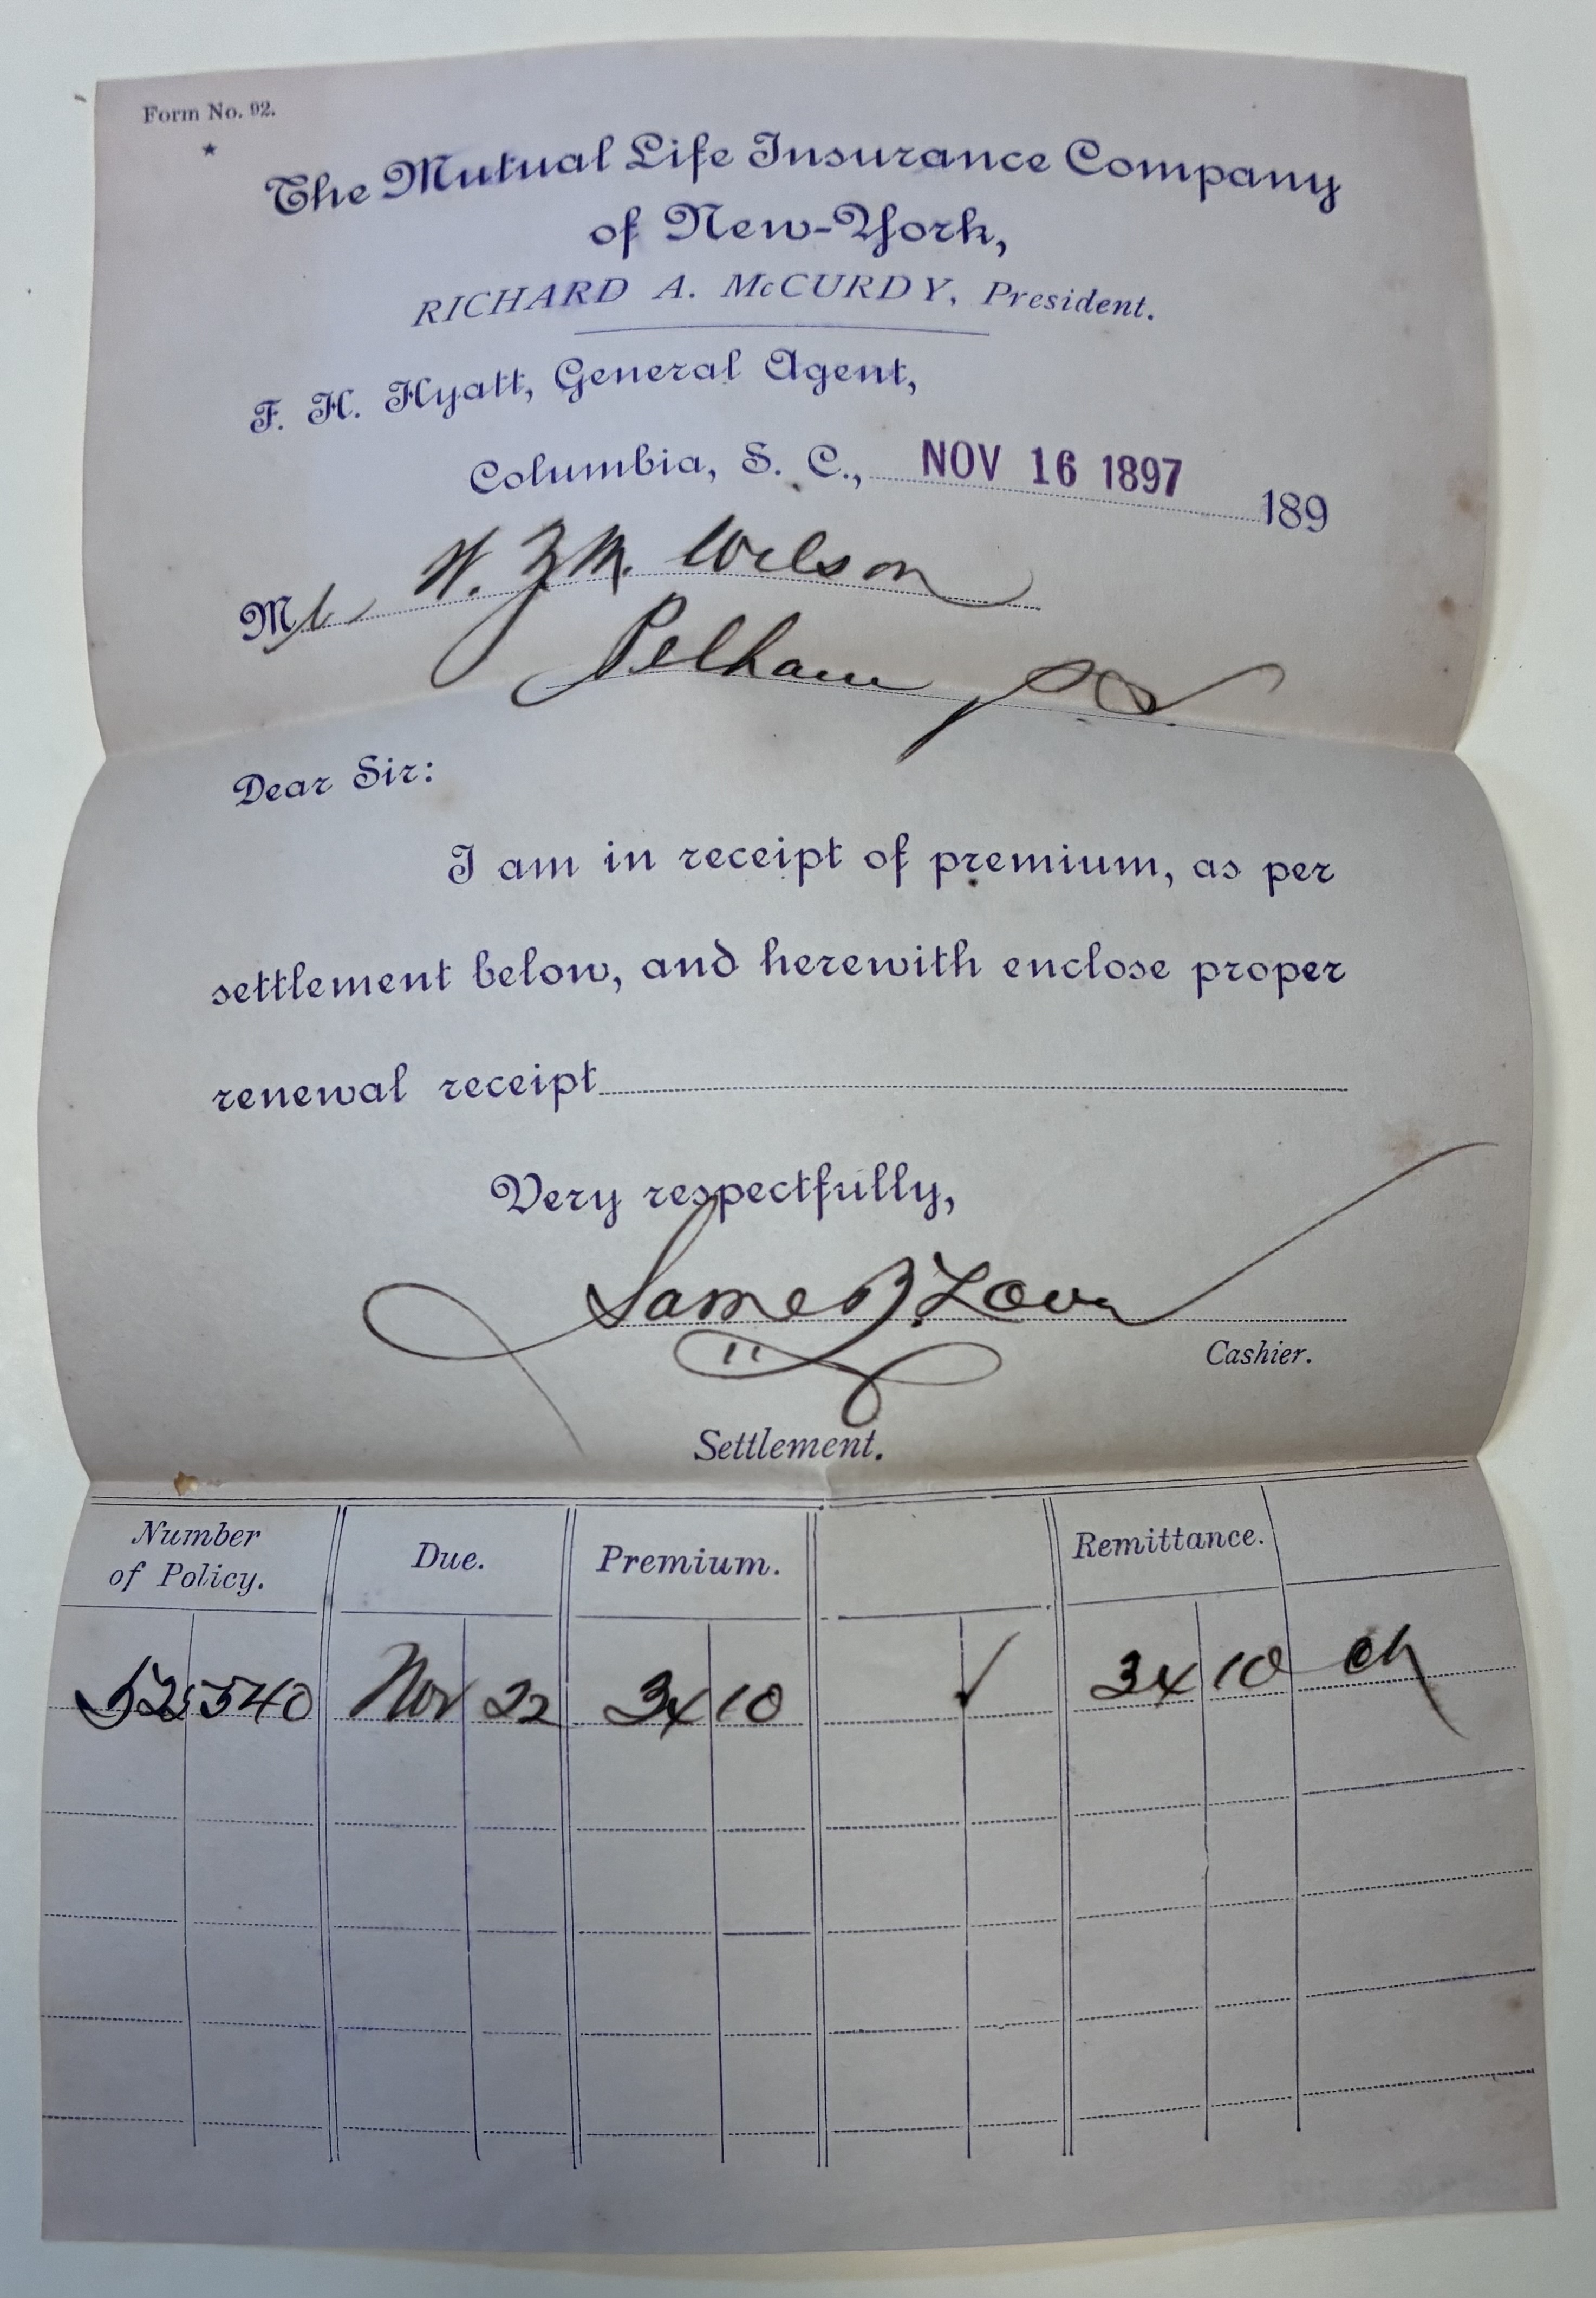 Form No. 92.
The Mutual Life Insurance Company
of New-York,
RICHARD A. McCURDY, President.
F. H. Hyatt, General Agent,
Columbia, S. C., NOV 16 1897 189
Mr W. Wilson
Pelham
Dear Sir:
I am in receipt of premium, as per
settlement below, and herewith enclose proper
renewal receipt
Very respectfully,
Cashier.
Settlement.
Number of Policy. Due. Premium. Remittance.
525540 Nov 22 34 10 ✓ 34 10 ck